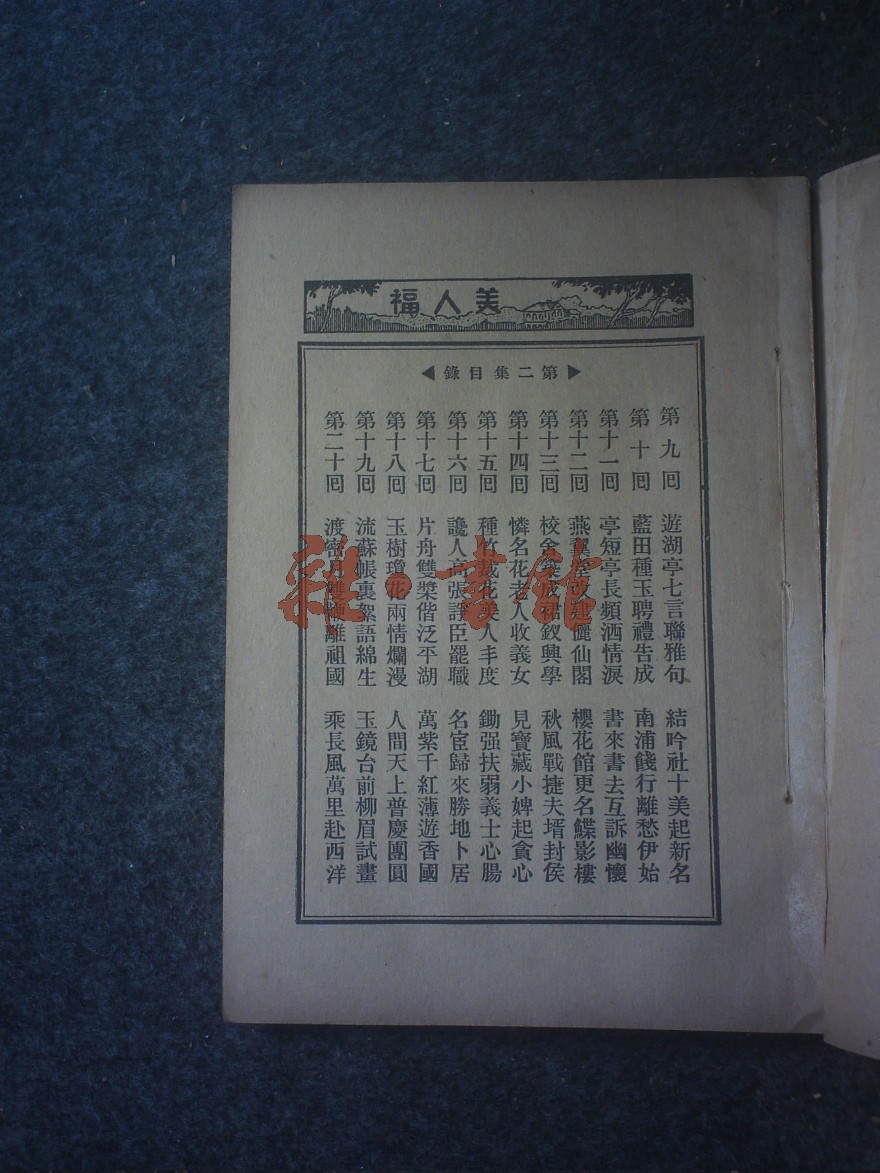 美人福
▶第二集目錄◀
第九回 遊湖亭七言聯雅句 結吟社十美起新名
第十回 藍田種玉聘禮告成 南浦餞行離愁伊始
第十一回 亭短亭長頻洒情淚 書來書去互訴幽懷
第十二回 燕 改建儷仙閣 櫻花館更名鰈影樓
第十三回 校舍 成裙釵興學 秋風戰捷夫壻封侯
第十四回 憐名花老人收義女 見寶藏小婢起貪心
第十五回 種竹栽花美人丰度 鋤强扶弱義士心腸
第十六回 讒人高張諍臣罷職 名宦歸來勝地卜居
第十七回 片舟雙槳偕泛平湖 萬紫千紅薄遊香國
第十八回 玉樹瓊花兩情爛漫 人間天上普慶團圓
第十九回 流蘇帳裏絮語綿生 玉鏡台前柳眉試畫
第二十回 渡密月雙 離祖國 乘長風萬里赴西洋
雜·書館